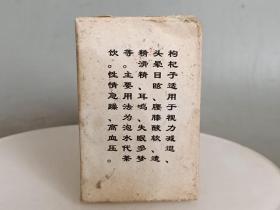 枸杞子适用于视力减退、
头晕目眩、腰膝酸软、遗
精滑精、耳鸣、失眠多梦
等。主要用法为泡水代茶
饮。性情急躁、高血压。